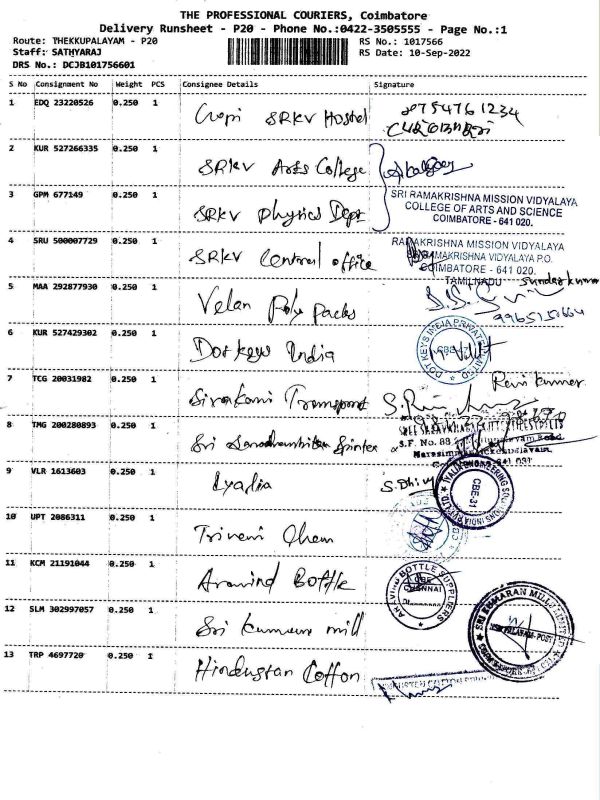 THE PROFESSIONAL COURIERS, Coimbatore
Delivery Runsheet - P20 - Phone No.:0422-3505555 - Page No.:1
Route: THEKKUPALAYAM - P20
RS No.: 1017566
Staff: SATHYARAJ
RS Date: 10-Sep-2022
DRS No.: DCJB101756601
S No Consignment No Weight PCS Consignee Details Signature
1 EDQ 23220526 0.250 1 Gopi SRKV Hostel 9754761234
2 KUR 527266335 0.250 1 SRKV Arts College
3 GPM 677149 0.250 1 SRKV Physics Dept
SRI RAMAKRISHNA MISSION VIDYALAYA
COLLEGE OF ARTS AND SCIENCE
COIMBATORE - 641 020.
4 SRU 500007729 0.250 1 SRKV Central office
RAMAKRISHNA MISSION VIDYALAYA
RAMAKRISHNA VIDYALAYA P.O.
COIMBATORE - 641 020.
TAMILNADU
5 MAA 292877930 0.250 1 Velan Poly packs Sundar kumar
6 KUR 527429302 0.250 1 Dot keys India
DOT KEYS INDIA PRIVATE
7 TCG 20031982 0.250 1 Sivakami Transport Ravi kumar
8 TMG 200280893 0.250 1 Sri
S.F. No. 88
Narasimma
9 VLR 1613603 0.250 1 Lyalia
ENGINEERING SOLUTIONS INDIA
CBE-31
10 UPT 2086311 0.250 1 Triveni Chem
11 KCM 21191044 0.250 1 Aravind Bottle
ARAVIND BOTTLE SUPPLIERS
12 SLM 302997057 0.250 1 Sri kumaran mill
SRI KUMARAN MILL
13 TRP 4697720 0.250 1 Hindustan Cotton